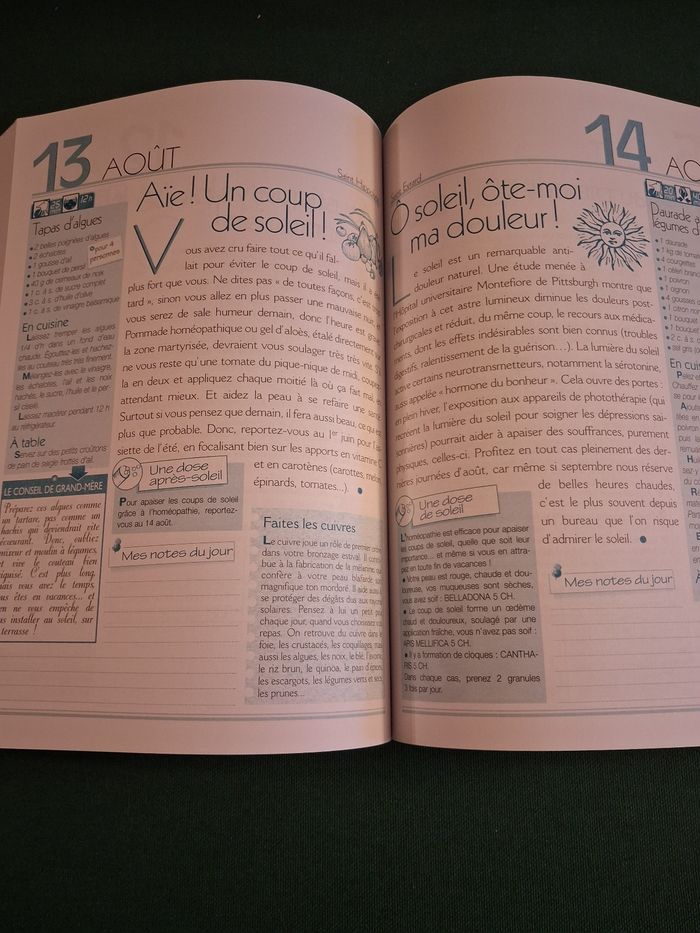 13 AOÛT
25
12 h
Tapas d'algues
• 2 belles poignées d'algues
• 2 échalotes
• 1 gousse d'ail
• 1 bouquet de persil
• 40 g de cerneaux de noix
• 1 c. à s. de sucre complet
• 3 c. à s. d'huile d'olive
• 1 c. à s. de vinaigre balsamique
pour 4
personnes
En cuisine
Laissez tremper les algues
1/4 d'h dans un fond d'eau
chaude. Égouttez-les et hachez-
les au couteau très très finement.
Mélangez-les avec le vinaigre,
les échalotes, l'ail et les noix
hachés, le sucre, l'huile et le per-
sil ciselé.
Laissez macérer pendant 12 h
au réfrigérateur.
À table
Servez sur des petits croûtons
de pain de seigle frottés d'ail.
LE CONSEIL DE GRAND-MÈRE
Préparez ces algues comme
un tartare, pas comme un
hachis qui deviendrait vite
écœurant. Donc, oubliez
mixeur et moulin à légumes,
et vive le couteau bien
aiguisé. C'est plus long,
mais vous avez le temps,
vous êtes en vacances... et
rien ne vous empêche de
vous installer au soleil, sur
terrasse !
Aïe ! Un coup
de soleil !
Vous avez cru faire tout ce qu'il fal-
lait pour éviter le coup de soleil, mais il a été
plus fort que vous. Ne dites pas « de toutes façons, c'est trop
tard », sinon vous allez en plus passer une mauvaise nuit, et
vous serez de sale humeur demain, donc l'heure est grave.
Pommade homéopathique ou gel d'aloès, étalé directement sur
la zone martyrisée, devraient vous soulager très très vite. S'il
ne vous reste qu'une tomate du pique-nique de midi, coupez-
la en deux et appliquez chaque moitié là où ça fait mal, en
attendant mieux. Et aidez la peau à se refaire une santé.
Surtout si vous pensez que demain, il fera aussi beau, ce qui est
plus que probable. Donc, reportez-vous au 1er juin pour l'as-
siette de l'été, en focalisant bien sur les apports en vitamine C
et en carotènes (carottes, melon,
épinards, tomates...).
Une dose
après-soleil
Pour apaiser les coups de soleil
grâce à l'homéopathie, reportez-
vous au 14 août.
Mes notes du jour
Faites les cuivres
Le cuivre joue un rôle de premier ordre
dans votre bronzage estival. Il contri-
bue à la fabrication de la mélanine, qui
confère à votre peau blafarde son
magnifique ton mordoré. Il aide aussi à
se protéger des dégâts dus aux rayons
solaires. Pensez à lui un petit peu
chaque jour, quand vous choisissez vos
repas. On retrouve du cuivre dans le
foie, les crustacés, les coquillages, mais
aussi les algues, les noix, le blé, l'avoine,
le riz brun, le quinoa, le pain d'épices,
les escargots, les légumes verts et secs,
les prunes...
14
Evrard
Ô soleil, ôte-moi
ma douleur !
Le soleil est un remarquable anti-
douleur naturel. Une étude menée à
l'Hôpital universitaire Montefiore de Pittsburgh montre que
l'exposition à cet astre lumineux diminue les douleurs post-
chirurgicales et réduit, du même coup, le recours aux médica-
ments, dont les effets indésirables sont bien connus (troubles
digestifs, ralentissement de la guérison...). La lumière du soleil
active certains neurotransmetteurs, notamment la sérotonine,
aussi appelée « hormone du bonheur ». Cela ouvre des portes :
en plein hiver, l'exposition aux appareils de photothérapie (qui
recréent la lumière du soleil pour soigner les dépressions sai-
sonnières) pourrait aider à apaiser des souffrances, purement
physiques, celles-ci. Profitez en tout cas pleinement des der-
nières journées d'août, car même si septembre nous réserve
de belles heures chaudes,
c'est le plus souvent depuis
un bureau que l'on risque
d'admirer le soleil.
Une dose
de soleil
L'homéopathie est efficace pour apaiser
les coups de soleil, quelle que soit leur
importance... et même si vous en attra-
pez en toute fin de vacances !
• Votre peau est rouge, chaude et dou-
loureuse, vos muqueuses sont sèches,
vous avez soif : BELLADONA 5 CH.
• Le coup de soleil forme un œdème
chaud et douloureux, soulagé par une
application fraîche, vous n'avez pas soif :
APIS MELLIFICA 5 CH.
• Il y a formation de cloques : CANTHA-
RIS 5 CH.
Dans chaque cas, prenez 2 granules
3 fois par jour.
Mes notes du jour
20
Daurade
légumes d
• 1 daurade
• 1 kg de tomat
• 4 courgettes
• 1 oignon